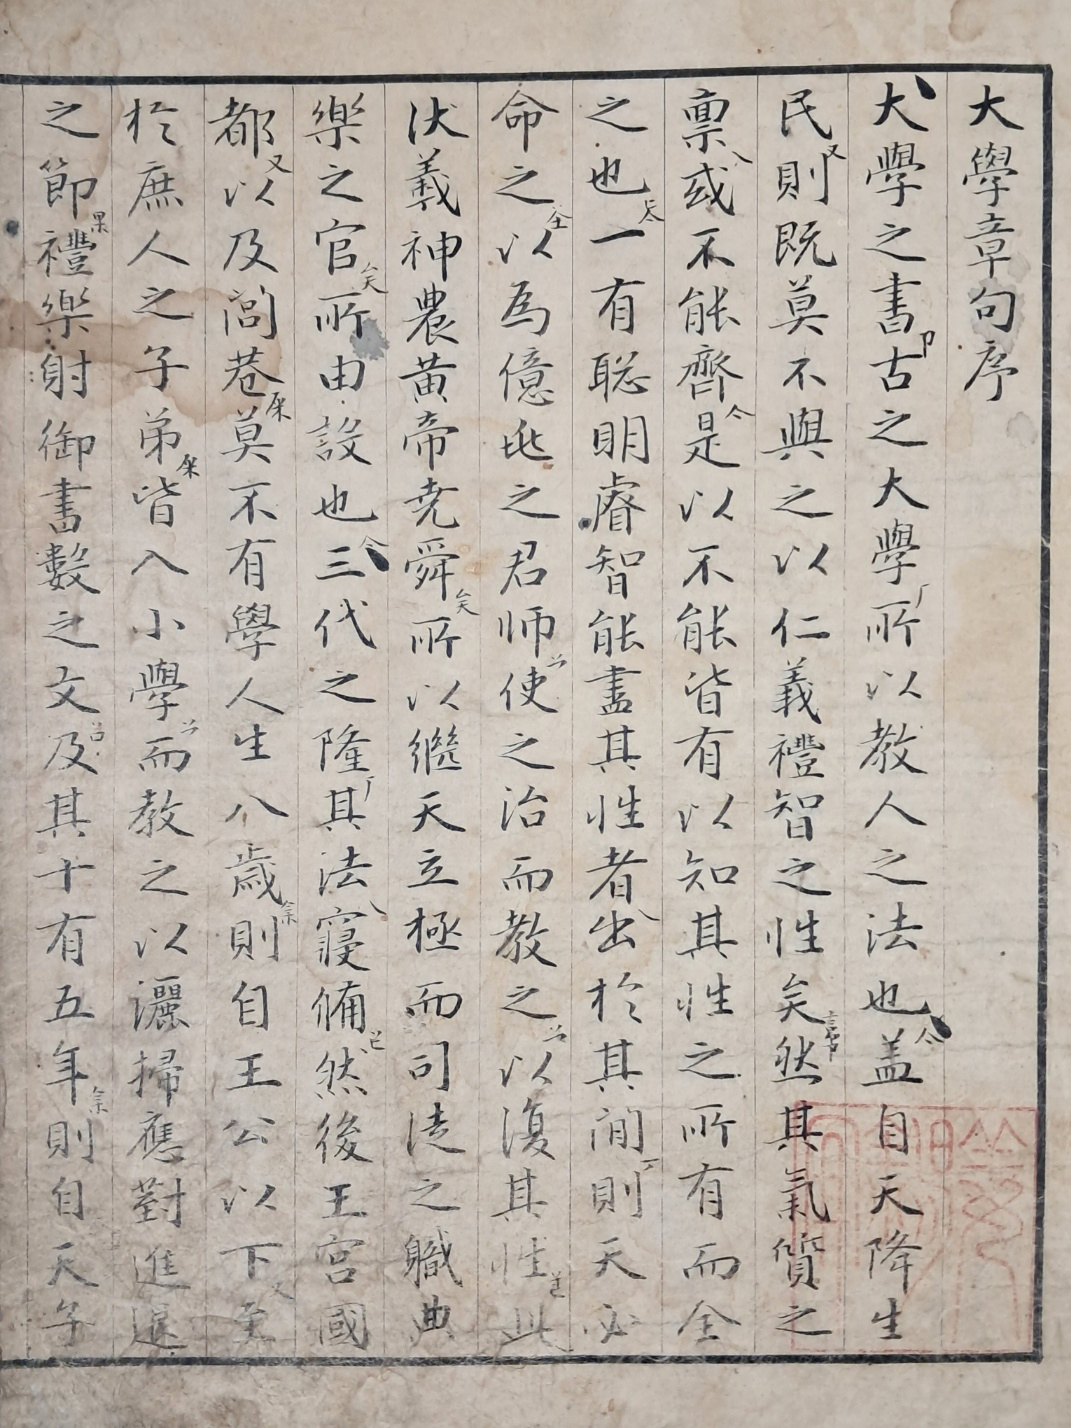 大學章句序
大學之書古之大學所以教人之法也盖自天降生
民則既莫不與之以仁義禮智之性矣然其氣質之
禀或不能齊是以不能皆有以知其性之所有而全
之也一有聡明睿智能盡其性者出於其間則天必
命之以爲億兆之君師使之治而教之以復其性此
伏羲神農黄帝尭舜所以繼天立極而司徒之職典
樂之官所由設也三代之隆其法寖備然後王宮國
都以及閭巷莫不有學人生八歲則自王公以下至
於庶人之子弟皆入小學而教之以灑掃應對進退
之節禮樂射御書數之文及其十有五年則自天子